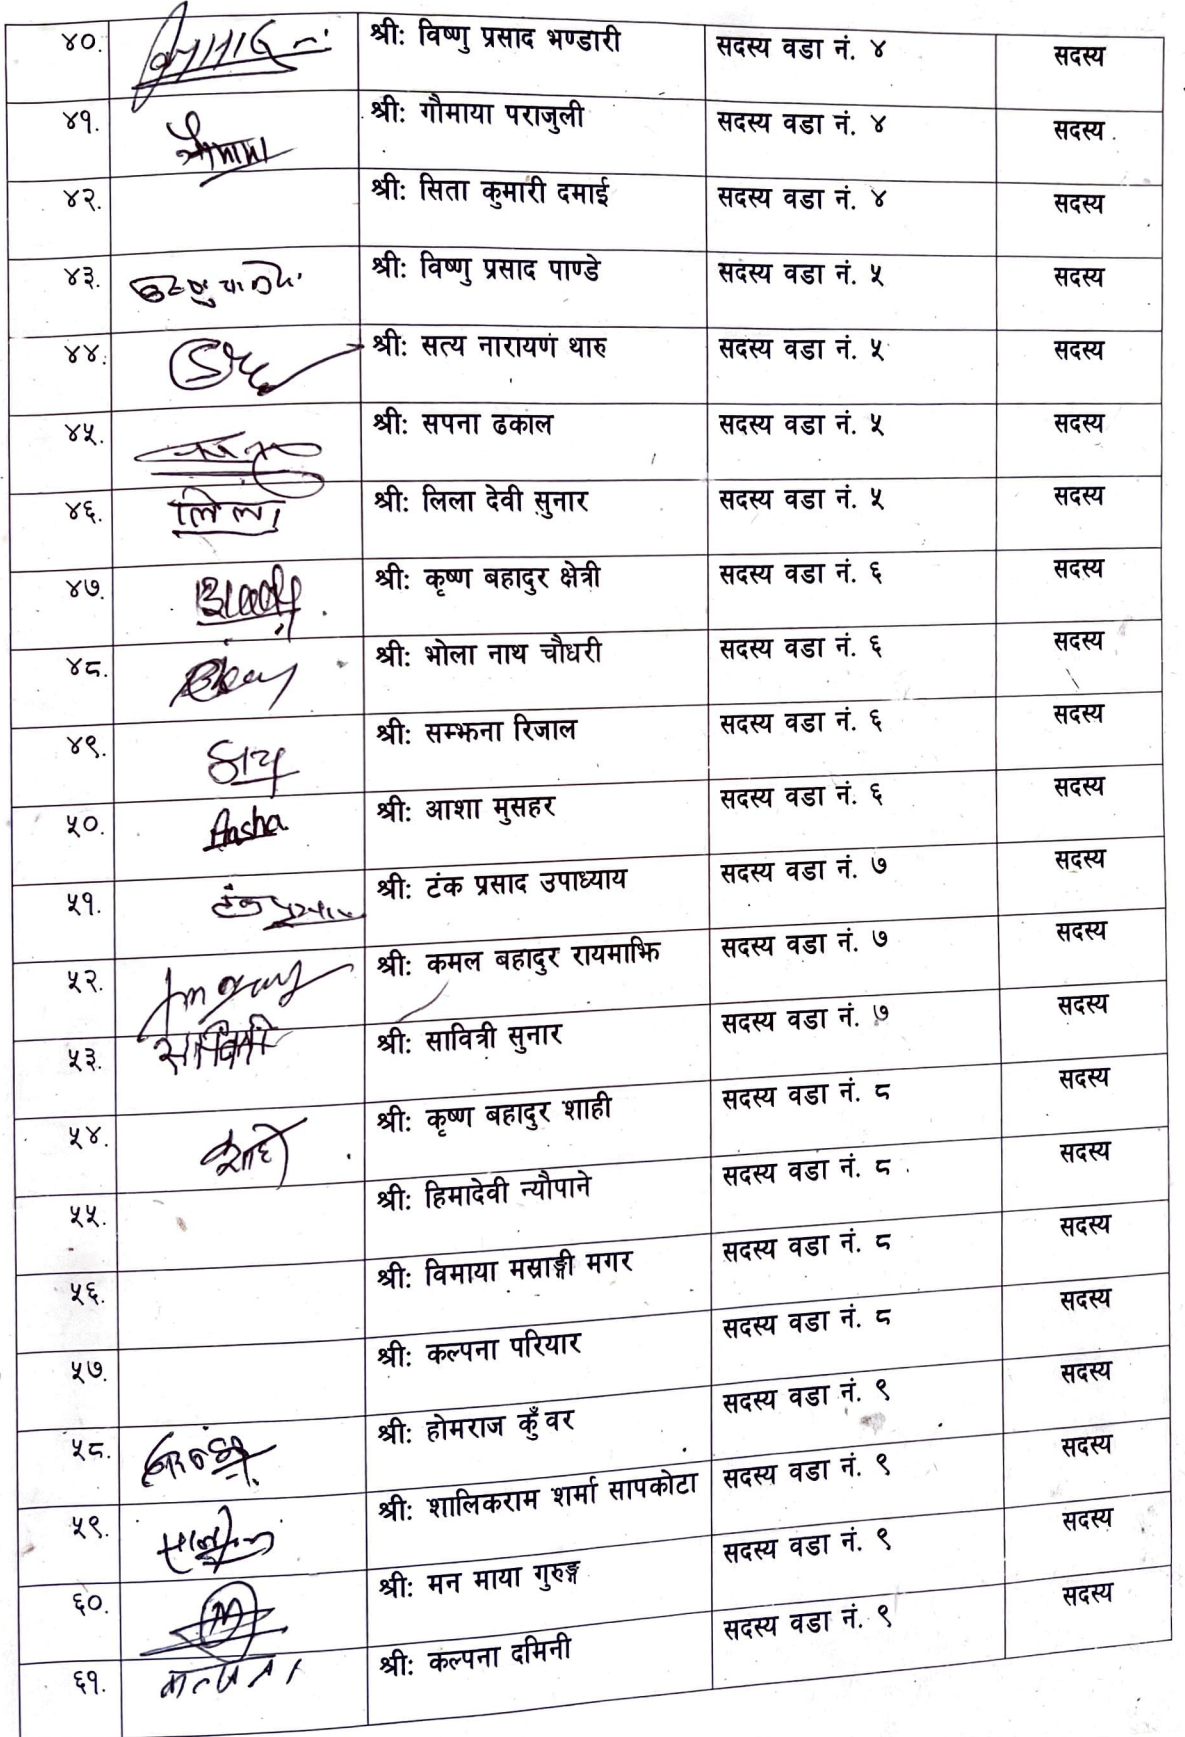 ४०. श्री: विष्णु प्रसाद भण्डारी सदस्य वडा नं. ४ सदस्य
४१. श्री: गौमाया पराजुली सदस्य वडा नं. ४ सदस्य
४२. श्री: सिता कुमारी दमाई सदस्य वडा नं. ४ सदस्य
४३. श्री: विष्णु प्रसाद पाण्डे सदस्य वडा नं. ५ सदस्य
४४. श्री: सत्य नारायण थारु सदस्य वडा नं. ५ सदस्य
४५. श्री: सपना ढकाल सदस्य वडा नं. ५ सदस्य
४६. लिला श्री: लिला देवी सुनार सदस्य वडा नं. ५ सदस्य
४७. श्री: कृष्ण बहादुर क्षेत्री सदस्य वडा नं. ६ सदस्य
४८. श्री: भोला नाथ चौधरी सदस्य वडा नं. ६ सदस्य
४९. श्री: सम्झना रिजाल सदस्य वडा नं. ६ सदस्य
५०. Aasha श्री: आशा मुसहर सदस्य वडा नं. ६ सदस्य
५१. श्री: टंक प्रसाद उपाध्याय सदस्य वडा नं. ७ सदस्य
५२. श्री: कमल बहादुर रायमाझि सदस्य वडा नं. ७ सदस्य
५३. सावित्री श्री: सावित्री सुनार सदस्य वडा नं. ७ सदस्य
५४. श्री: कृष्ण बहादुर शाही सदस्य वडा नं. ८ सदस्य
५५. श्री: हिमादेवी न्यौपाने सदस्य वडा नं. ८ सदस्य
५६. श्री: विमाया मस्राङ्गी मगर सदस्य वडा नं. ८ सदस्य
५७. श्री: कल्पना परियार सदस्य वडा नं. ८ सदस्य
५८. श्री: होमराज कुँवर सदस्य वडा नं. ९ सदस्य
५९. श्री: शालिकराम शर्मा सापकोटा सदस्य वडा नं. ९ सदस्य
६०. श्री: मन माया गुरुङ्ग सदस्य वडा नं. ९ सदस्य
६१. कल्पना श्री: कल्पना दमिनी सदस्य वडा नं. ९ सदस्य